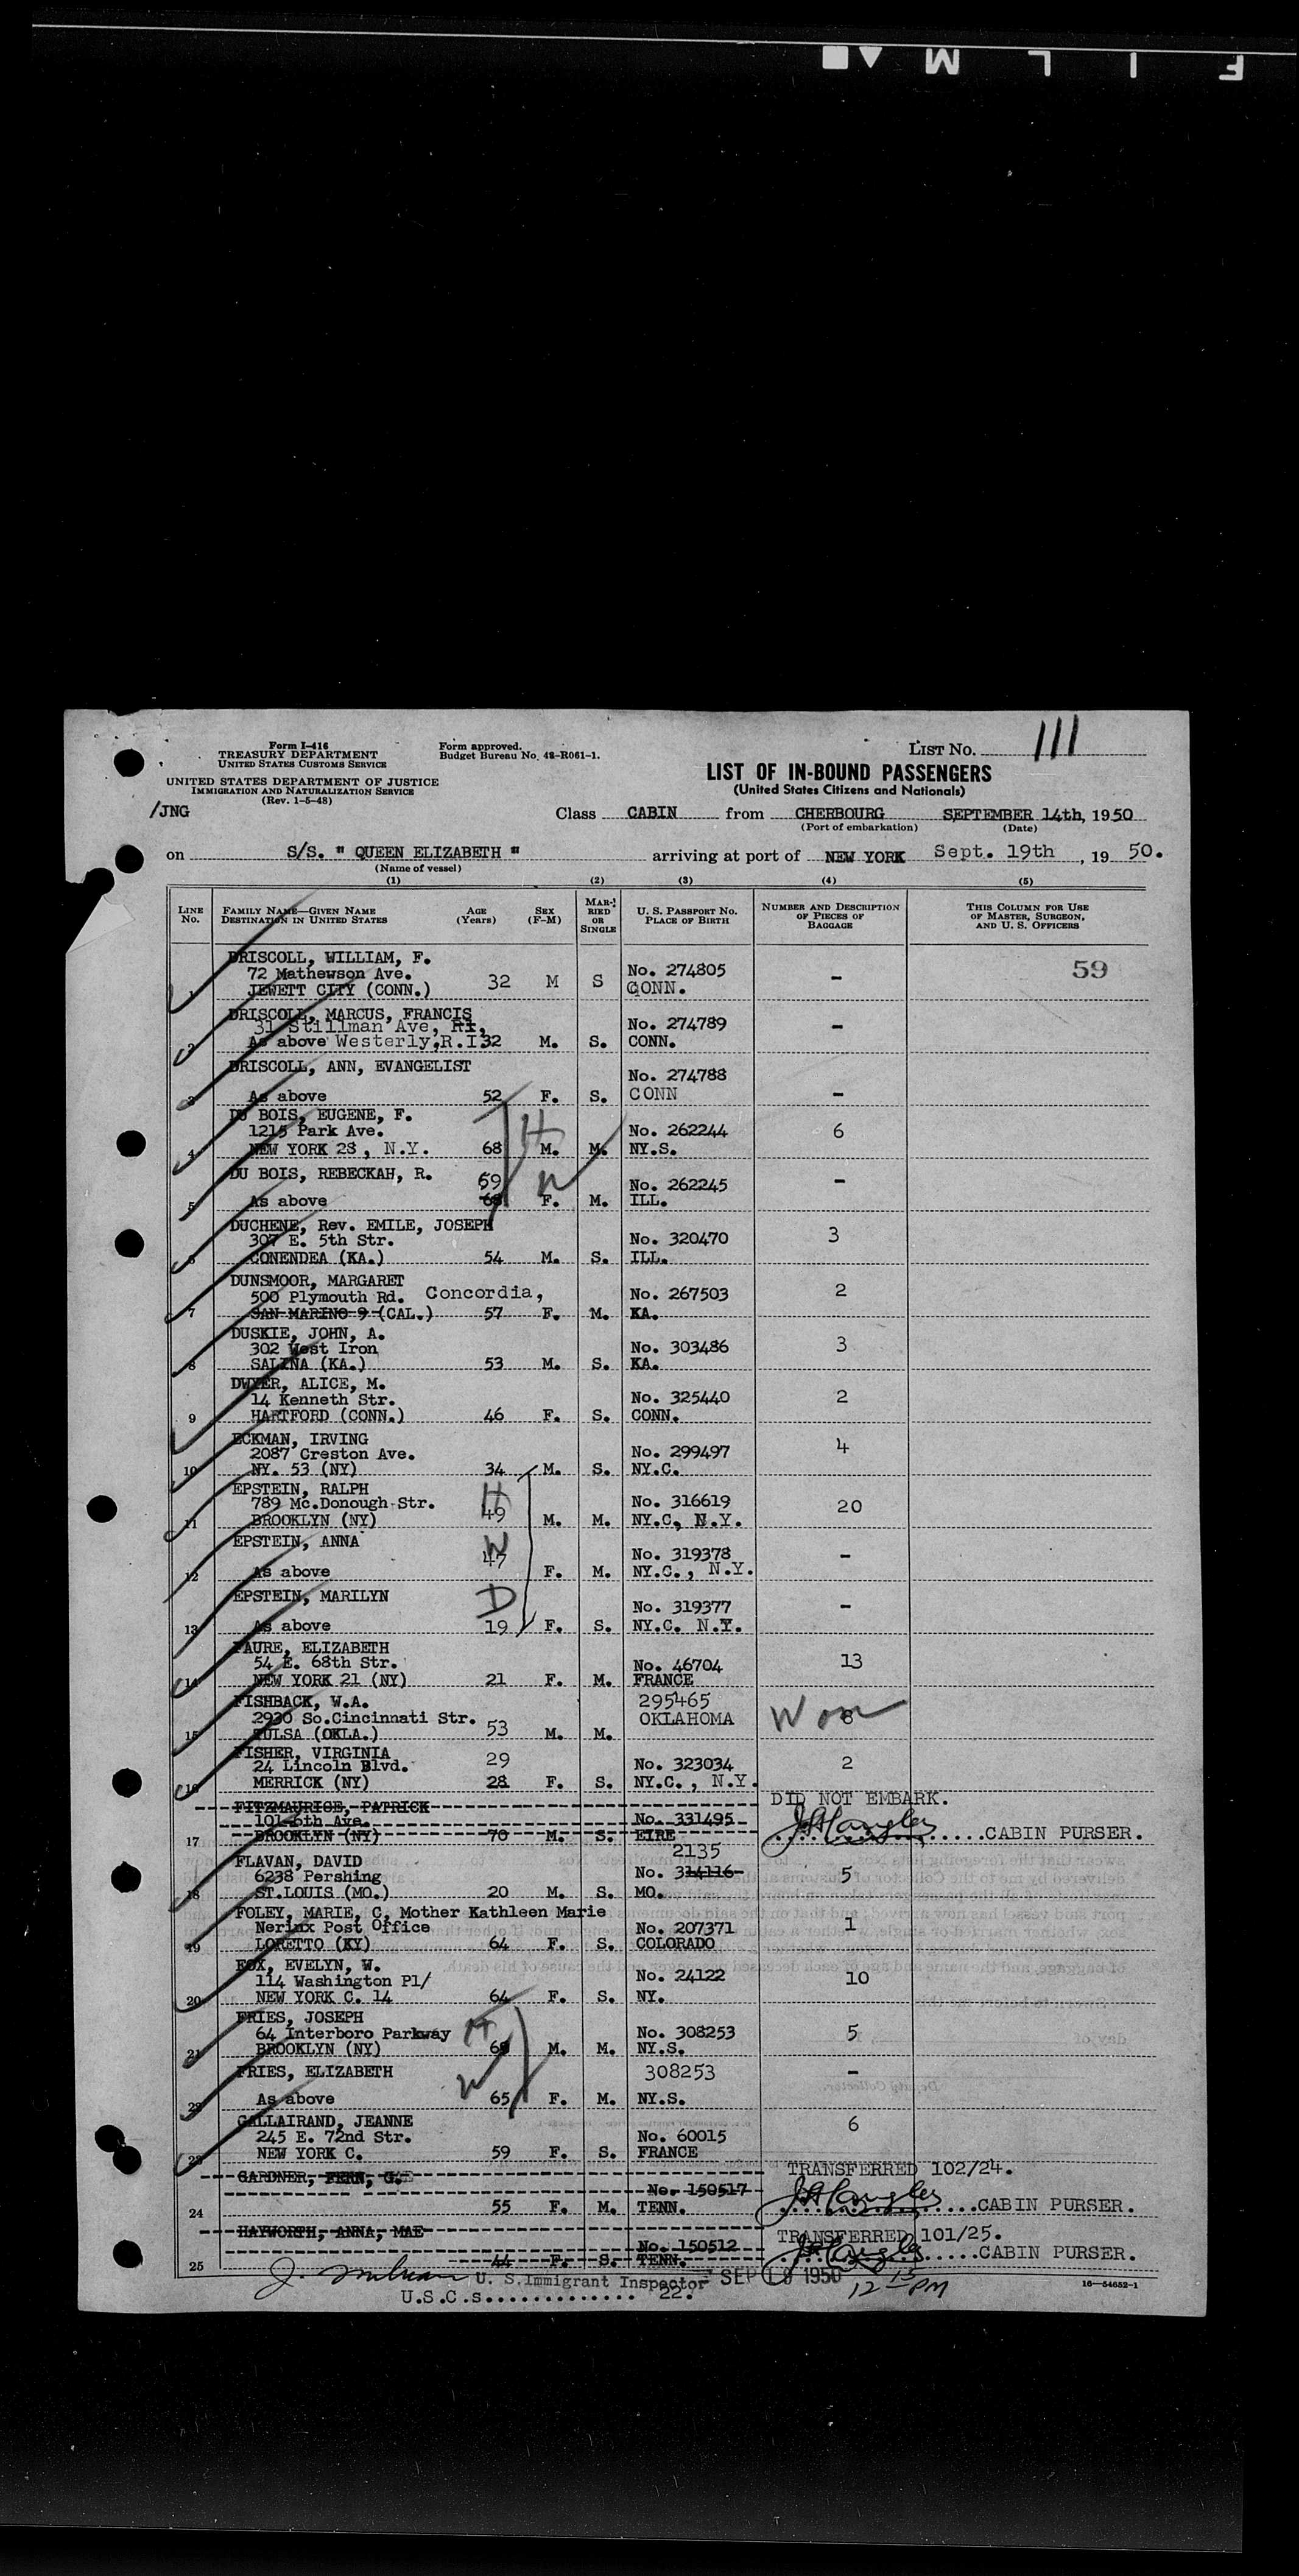 FILM
Form I-416
TREASURY DEPARTMENT
UNITED STATES CUSTOMS SERVICE
Form approved.
Budget Bureau No. 48-R061-1.
LIST NO. 111
UNITED STATES DEPARTMENT OF JUSTICE
IMMIGRATION AND NATURALIZATION SERVICE
(Rev. 1-5-48)
LIST OF IN-BOUND PASSENGERS
(United States Citizens and Nationals)
/JNG
Class CABIN from CHERBOURG SEPTEMBER 14th, 1950
(Port of embarkation) (Date)
on S/S. " QUEEN ELIZABETH " arriving at port of NEW YORK Sept. 19th, 19 50.
(Name of vessel)
(1) (2) (3) (4) (5)
LINE NO. FAMILY NAME—GIVEN NAME DESTINATION IN UNITED STATES AGE (Years) SEX (F-M) MARRIED OR SINGLE U. S. PASSPORT NO. PLACE OF BIRTH NUMBER AND DESCRIPTION OF PIECES OF BAGGAGE THIS COLUMN FOR USE OF MASTER, SURGEON, AND U. S. OFFICERS
59
DRISCOLL, WILLIAM, F.
72 Mathewson Ave. No. 274805 -
1 JEWETT CITY (CONN.) 32 M S CONN.
DRISCOLL, MARCUS, FRANCIS
31 Stillman Ave, RI, No. 274789 -
2 As above Westerly,R.I 32 M. S. CONN.
DRISCOLL, ANN, EVANGELIST No. 274788
3 As above 52 F. S. CONN -
DU BOIS, EUGENE, F. H
1215 Park Ave. No. 262244 6
4 NEW YORK 28, N.Y. 68 M. M. NY.S.
DU BOIS, REBECKAH, R. 59 W No. 262245 -
5 As above F. M. ILL.
DUCHENE, Rev. EMILE, JOSEPH
307 E. 5th Str. No. 320470 3
6 CONENDEA (KA.) 54 M. S. ILL.
DUNSMOOR, MARGARET
500 Plymouth Rd. Concordia, No. 267503 2
7 SAN MARINO 9 (CAL.) 57 F. M. KA.
DUSKIE, JOHN, A.
302 West Iron No. 303486 3
8 SALINA (KA.) 53 M. S. KA.
DWYER, ALICE, M.
14 Kenneth Str. No. 325440 2
9 HARTFORD (CONN.) 46 F. S. CONN.
ECKMAN, IRVING
2087 Creston Ave. No. 299497 4
10 NY. 53 (NY) 34 M. S. NY.C.
EPSTEIN, RALPH H
789 Mc.Donough Str. 49 No. 316619 20
11 BROOKLYN (NY) M. M. NY.C, N.Y.
EPSTEIN, ANNA W
47 No. 319378 -
12 As above F. M. NY.C., N.Y.
EPSTEIN, MARILYN D No. 319377 -
13 As above 19 F. S. NY.C. N.Y.
FAURE, ELIZABETH
54 E. 68th Str. No. 46704 13
14 NEW YORK 21 (NY) 21 F. M. FRANCE
FISHBACK, W.A. 295465
2930 So.Cincinnati Str. OKLAHOMA 8
15 TULSA (OKLA.) 53 M. M.
FISHER, VIRGINIA 29
24 Lincoln Blvd. No. 323034 2
16 MERRICK (NY) 28 F. S. NY.C., N.Y.
DID NOT EMBARK.
FITZMAURICE, PATRICK
101-6th Ave. No. 331495
17 BROOKLYN (NY) 70 M. S. EIRE .....CABIN PURSER.
2135
FLAVAN, DAVID
6238 Pershing No. 314116 5
18 ST.LOUIS (MO.) 20 M. S. MO.
FOLEY, MARIE, C, Mother Kathleen Marie
Nerinx Post Office No. 207371 1
19 LORETTO (KY) 64 F. S. COLORADO
FOX, EVELYN, W.
114 Washington Pl/ No. 24122 10
20 NEW YORK C. 14 64 F. S. NY.
FRIES, JOSEPH H
64 Interboro Parkway No. 308253 5
21 BROOKLYN (NY) M. M. NY.S.
FRIES, ELIZABETH W 308253 -
22 As above 65 F. M. NY.S.
GALLAIRAND, JEANNE 6
245 E. 72nd Str. No. 60015
23 NEW YORK C. 59 F. S. FRANCE
TRANSFERRED 102/24.
GARDNER, FERN, G.
No. 150517
24 55 F. M. TENN. .....CABIN PURSER.
HAYWORTH, ANNA, MAE TRANSFERRED 101/25.
No. 150512 .....CABIN PURSER.
25 44 F. S. TENN.
U. S. Immigrant Inspector SEP 19 1950 12 15 PM
U.S.C.s............. 22.
16—54652-1